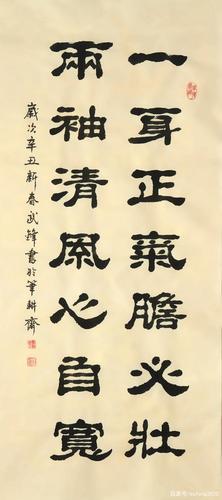 一身正氣膽必壯
兩袖清風心自寬
歲次辛丑新春武鋒書於筆耕齋